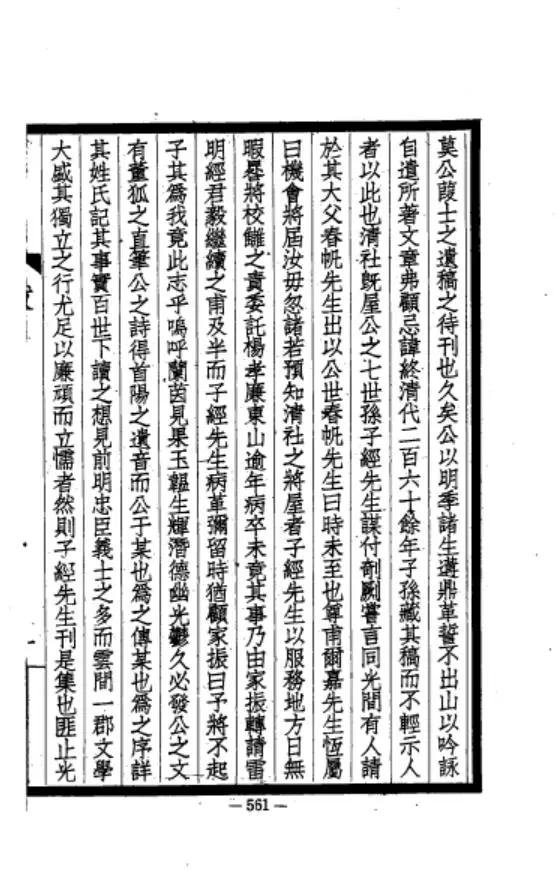 莫公葭士之遺稿之待刊也久矣公以明季諸生遘鼎革誓不出山以吟詠
自遣所著文章弗顧忌諱終清代二百六十餘年子孫藏其稿而不輕示人
者以此也清社既屋公之七世孫子經先生謀付剞劂嘗言同光間有人請
於其大父春帆先生出以公世春帆先生曰時未至也尊甫爾嘉先生恆屬
曰機會將屆汝毋忽諸若預知清社之將屋者子經先生以服務地方日無
暇晷將校讎之責委託楊孝廉東山逾年病卒未竟其事乃由家振轉請雷
明經君毅繼續之甫及半而子經先生病革彌留時猶顧家振曰予將不起
子其為我竟此志乎嗚呼蘭茵見果玉韞生輝潛德幽光鬱久必發公之文
有董狐之直筆公之詩得首陽之遺音而公于某也為之傳某也為之序詳
其姓氏記其事實百世下讀之想見前明忠臣義士之多而雲間一郡文學
大盛其獨立之行尤足以廉頑而立懦者然則子經先生刊是集也匪止光
— 561 —